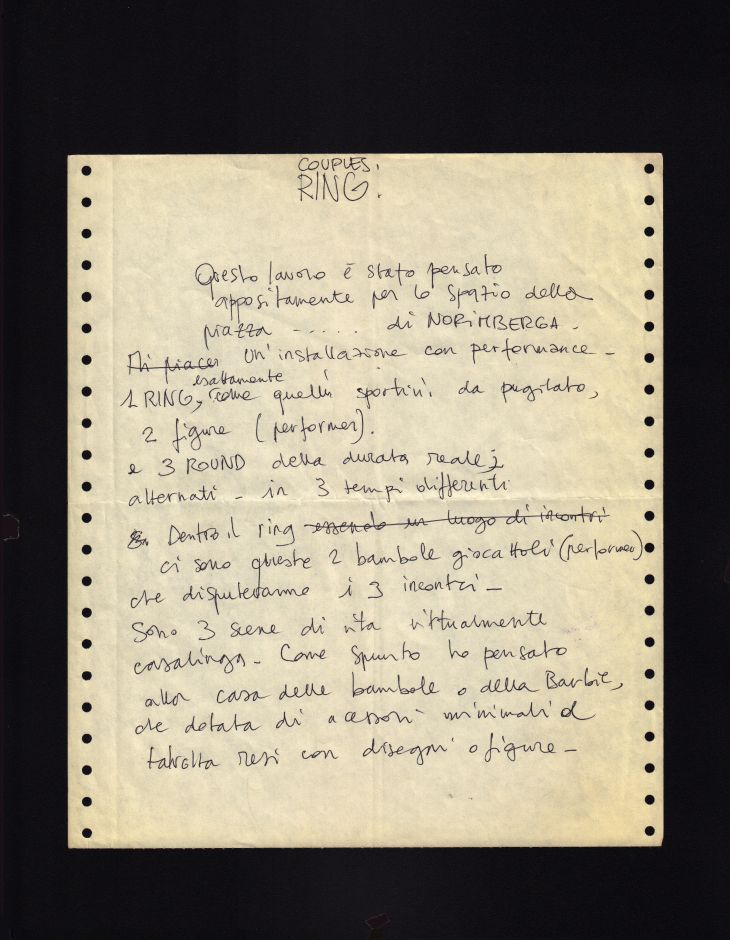 COUPLES.
RING.
Questo lavoro è stato pensato
appositamente per lo spazio della
piazza ..... di NORIMBERGA.
Mi piacer Un'installazione con performance -
esattamente
1 RING, come quelli sportivi da pugilato,
2 figure (performer).
e 3 ROUND della durata reale
alternati - in 3 tempi differenti
Dentro il ring essendo un luogo di incontri
ci sono queste 2 bambole giocattoli (performer)
che disputeranno i 3 incontri -
Sono 3 scene di vita virtualmente
casalinga - Come spunto ho pensato
alla casa delle bambole o della Barbie,
che dotata di acessori minimali e
talvolta resi con disegni o figure -